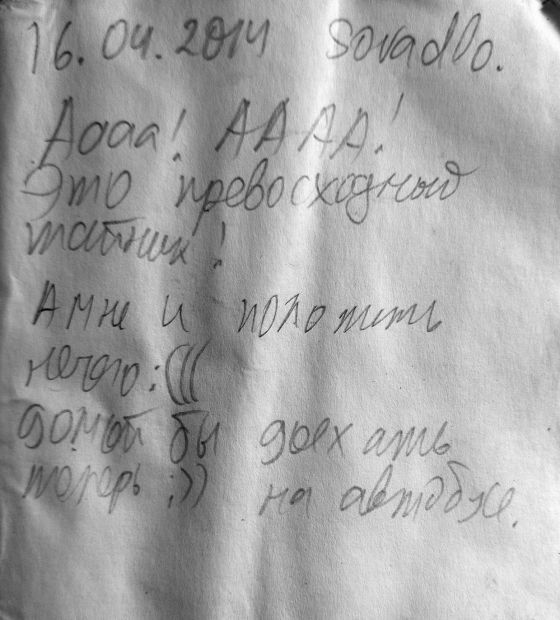 16.04.2014 Sovadlo.
Аааа! АААА!
Это превосходный
тайник!
А мне и положить
нечего :(((
домой бы доехать
теперь ;)) на автобусе.